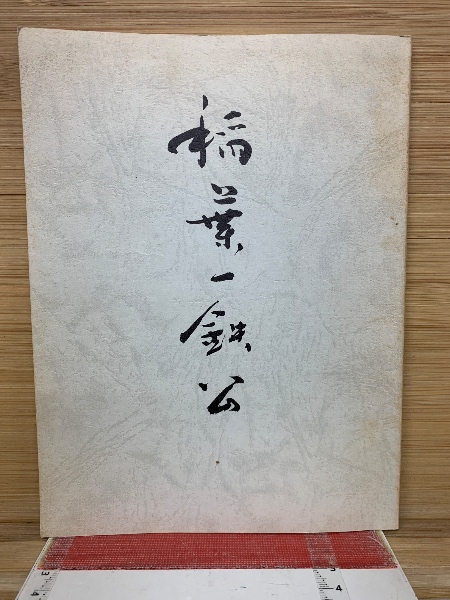 稲葉一鉄公
3
3
4